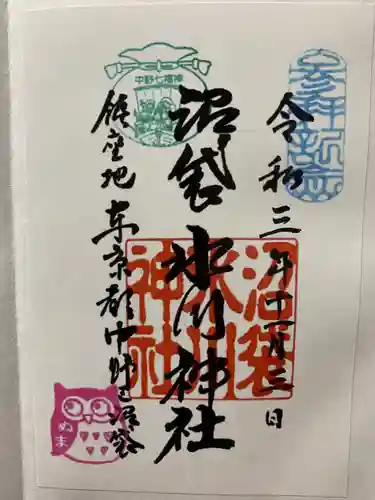 参拝記念
令和三年十一月三日
沼袋氷川神社
沼袋氷川神社
中野七福神
鎮座地 東京都中野区沼袋
ぬま